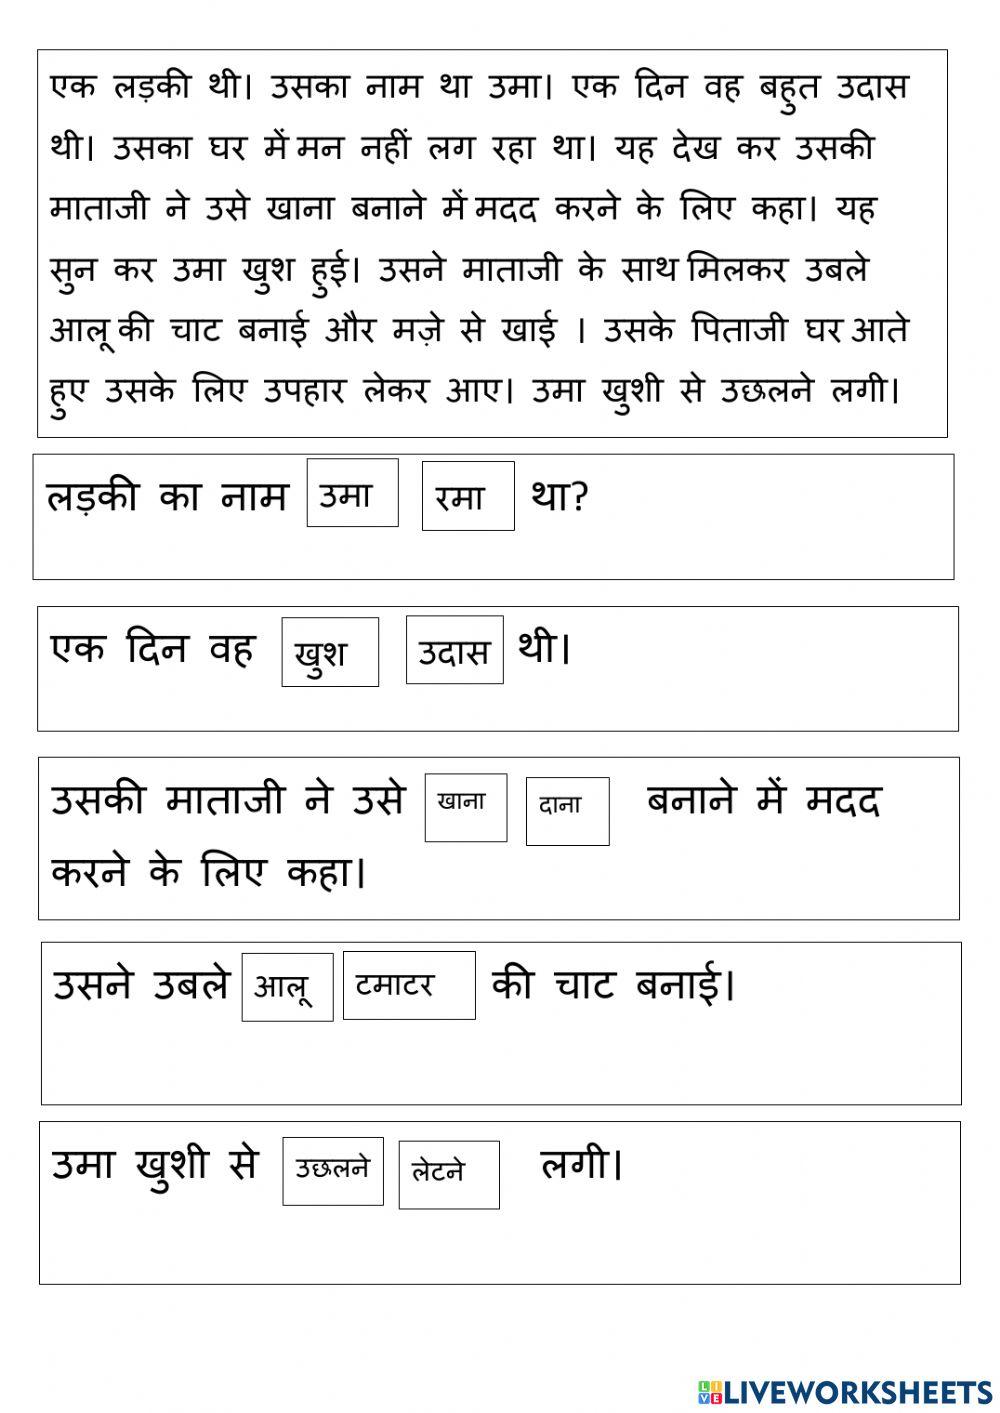 एक लड़की थी। उसका नाम था उमा। एक दिन वह बहुत उदास
थी। उसका घर में मन नहीं लग रहा था। यह देख कर उसकी
माताजी ने उसे खाना बनाने में मदद करने के लिए कहा। यह
सुन कर उमा खुश हुई। उसने माताजी के साथ मिलकर उबले
आलू की चाट बनाई और मज़े से खाई । उसके पिताजी घर आते
हुए उसके लिए उपहार लेकर आए। उमा खुशी से उछलने लगी।
लड़की का नाम उमा रमा था?
एक दिन वह खुश उदास थी।
उसकी माताजी ने उसे खाना दाना बनाने में मदद
करने के लिए कहा।
उसने उबले आलू टमाटर की चाट बनाई।
उमा खुशी से उछलने लेटने लगी।
LIVE LIVEWORKSHEETS